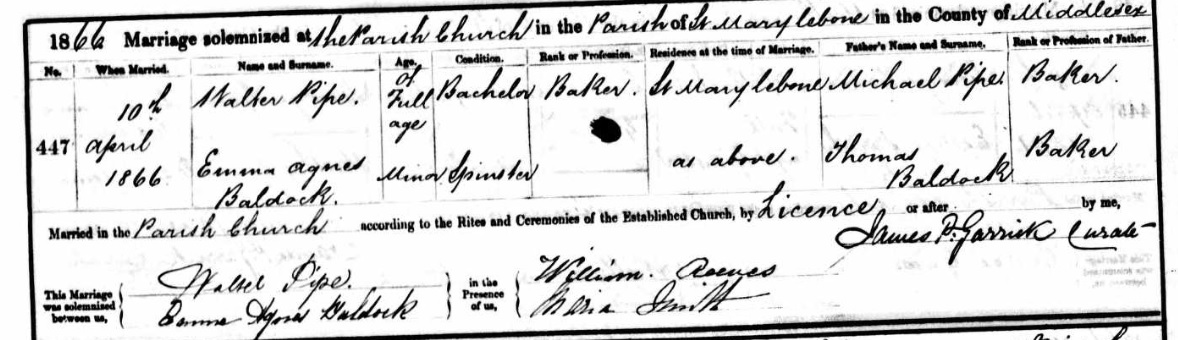 1866 Marriage solemnized at the Parish Church in the Parish of St Marylebone in the County of Middlesex
No. When Married. Name and Surname. Age. Condition. Rank or Profession. Residence at the time of Marriage. Father's Name and Surname. Rank or Profession of Father.
447 10th April 1866 Walter Pipe. Of Full age Bachelor Baker. St Marylebone Michael Pipe. Baker.
Emma Agnes Baldock. Minor Spinster as above. Thomas Baldock Baker
Married in the Parish Church according to the Rites and Ceremonies of the Established Church, by Licence or after by me,
James P. Garrick Curate
This Marriage was solemnized between us, Walter Pipe. Emma Agnes Baldock in the Presence of us, William Reeves Maria Smith